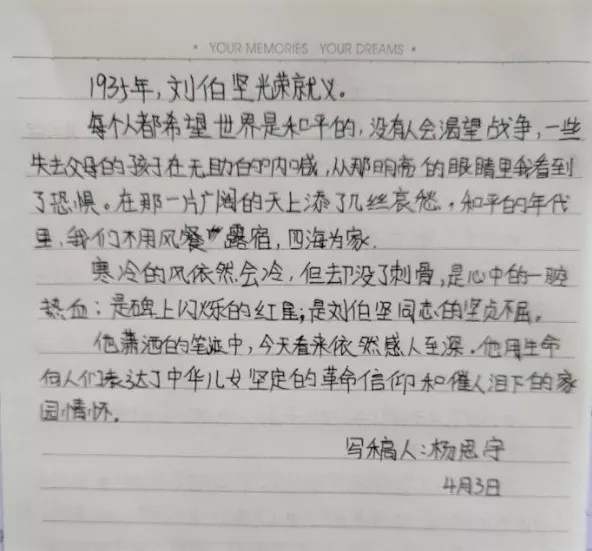 • YOUR MEMORIES YOUR DREAMS •
1935年,刘伯坚光荣就义。
每个人都希望世界是和平的,没有人会渴望战争,一些
失去父母的孩子在无助的呐喊,从那明亮的眼睛里我看到
了恐惧。在那一片广阔的天上添了几丝哀愁,和平的年代
里,我们不用风餐露宿,四海为家.
寒冷的风依然会冷,但却没了刺骨,是心中的一腔
热血;是碑上闪烁的红星;是刘伯坚同志的坚贞不屈。
他潇洒的笔迹中,今天看来依然感人至深.他用生命
向人们表达了中华儿女坚定的革命信仰和催人泪下的家
园情怀.
写稿人:杨思宇
4月3日